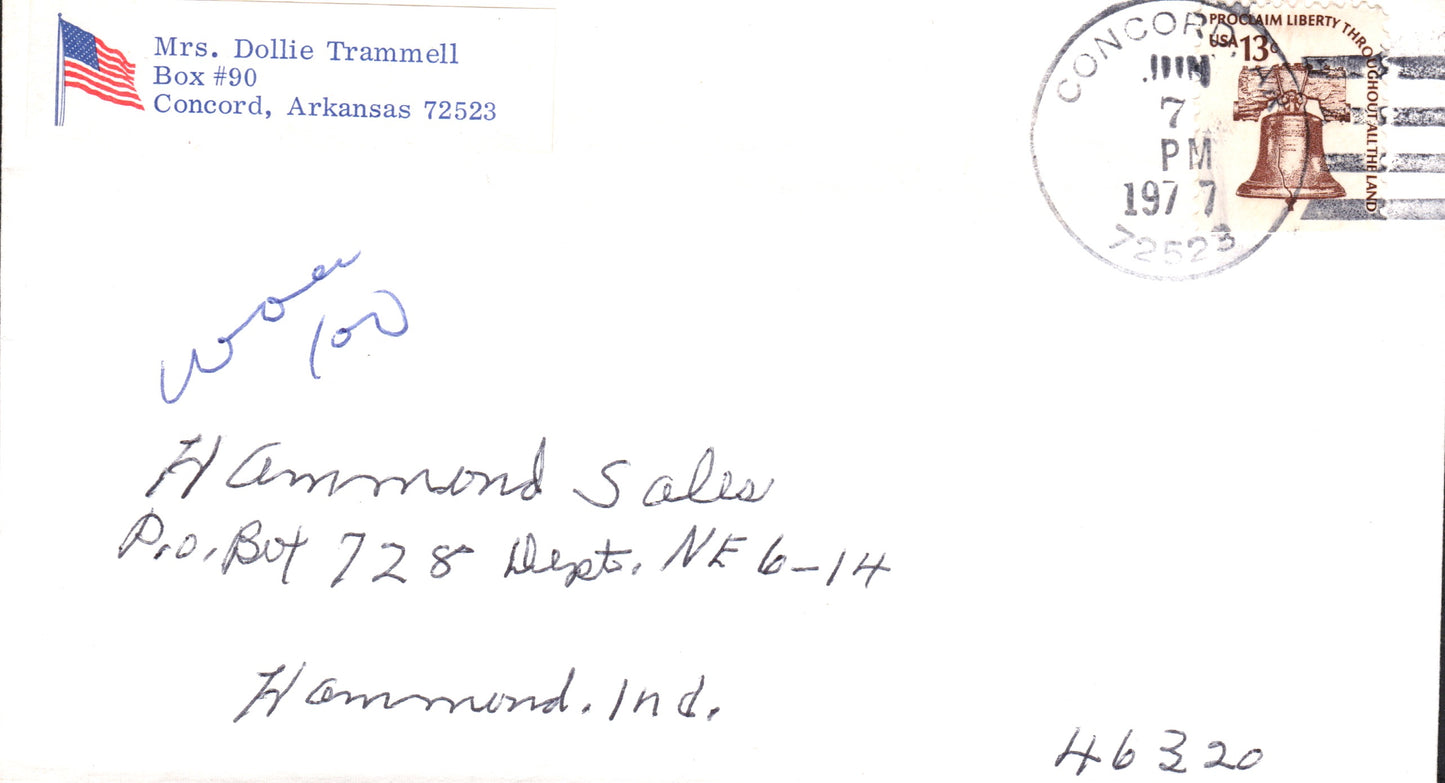 Mrs. Dollie Trammell
Box #90
Concord, Arkansas 72523
CONCORD, AR
JUN
7
PM
1977
72523
PROCLAIM LIBERTY THROUGHOUT ALL THE LAND
USA 13c
100
Hammond Sales
P.O. Box 728 Dept. NE 6-14
Hammond. Ind.
46320